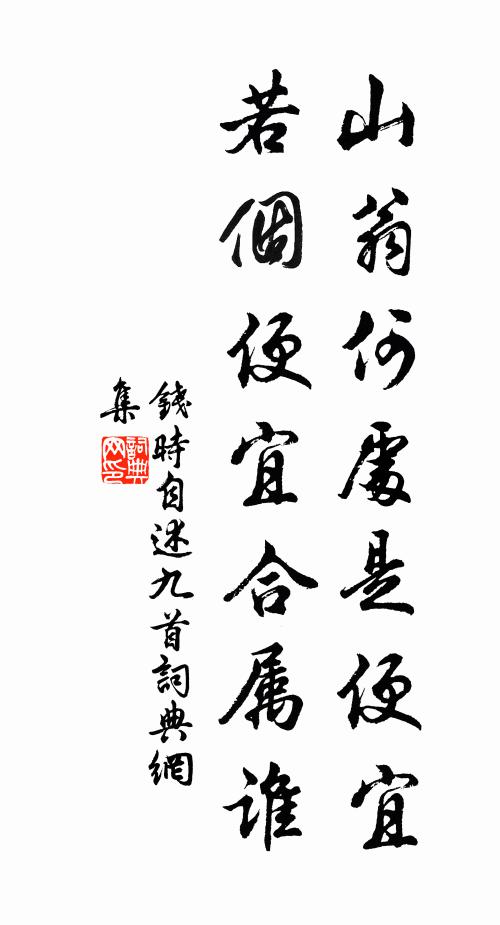 山翁何處是便宜
若個便宜合属誰
錢時自述九首詞典網
集
詞典網印